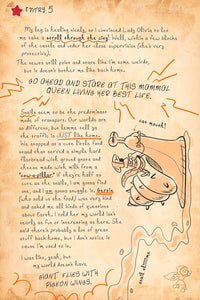 ENTRY 5
My leg is healing nicely, so I convinced Lady Olivia to let
me take a stroll through the city! Well, within a few blocks
of the castle and under her close supervision (she's very
protective).
The sewers still point and stare like I'm some weirdo,
but it doesn't bother me like back home.
GO AHEAD AND STORE AT THIS MAMMAL
QUEEN LIVING HER BEST LIFE.
Snails seem to be the predominate
mode of transport. Our worlds are
so different, but lemme tell ya:
the traffic is JUST like home.
We stopped at a cute Beetle food
stand that served a simple hard
flatbread with ground goose and
cheese made with milk from a
"cow-a-pillar." If they're half as
cute as the snails, I am gonna find
one, and I am gonna snuggle it. Gernie
(who sold us the food) was very kind
and asked me all kinds of questions
about Earth. I told her my world isn't
nearly as fun or interesting as hers. She
said there's probably a lot of great
stuff back home, but I don't notice it
cause I'm used to it.
I was like, yeah, but
my world doesn't have
GIANT FLIES WITH
PIGEON WINGS.